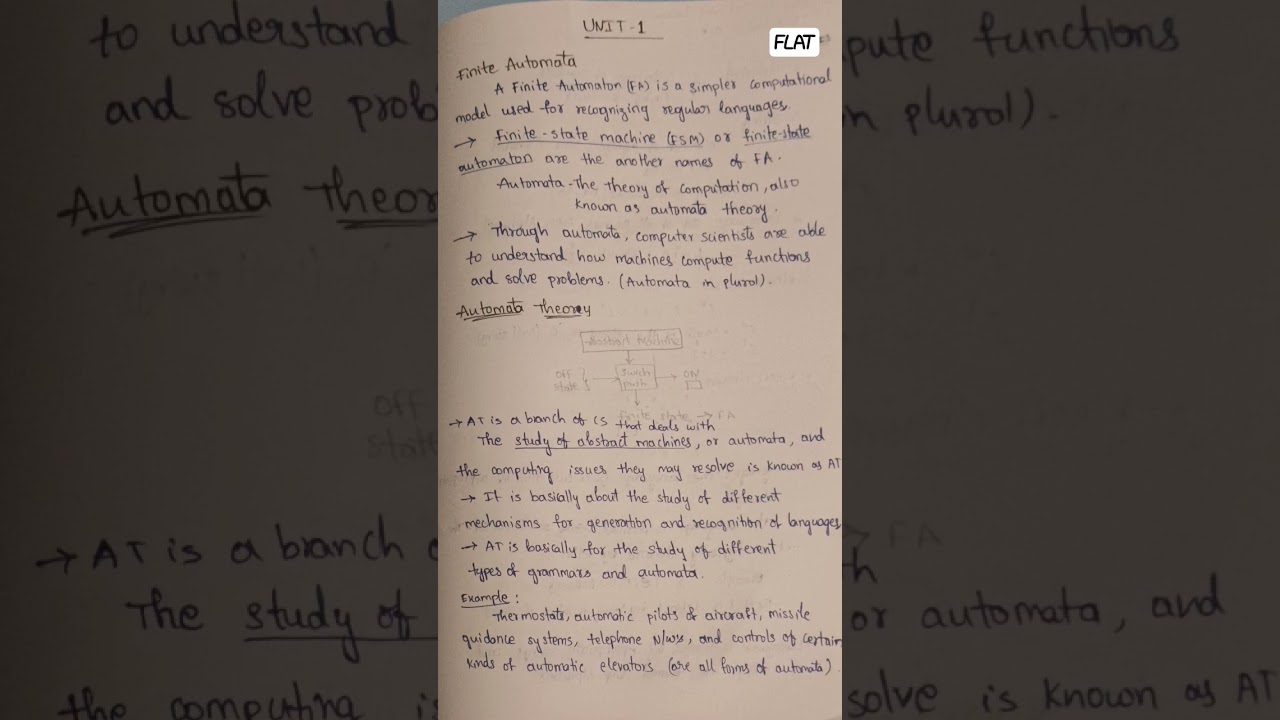 UNIT-1
FLAT
Finite Automata
A Finite Automaton (FA) is a simpler computational
model used for recognizing regular languages.
→ Finite-state machine (FSM) or finite-state
automaton are the another names of FA.
Automata - The theory of computation, also
known as automata theory.
→ Through automata, computer scientists are able
to understand how machines compute functions
and solve problems. (Automata in plurol).
Automata Theory
Abstract Machine
OFF state
Swich push
ON
finite state → FA
→ AT is a branch of CS that deals with
The study of abstract machines, or automata, and
the computing issues they may resolve is known as AT
→ It is basially about the study of different
mechanisms for generation and recognition of languages
→ AT is basially for the study of different
types of grammars and automata.
Example :
Thermostats, automatic pilots of aircraft, missile
guidance systems, telephone N/w's, and controls of certain
kinds of automatic elevators (are all forms of automata).
to understand
pute functions
and solve prob
n plurol).
Automata Theor
OFF
state
FA
→ AT is a branch
th
The study of
or automata, and
the computing is
solve is known as AT